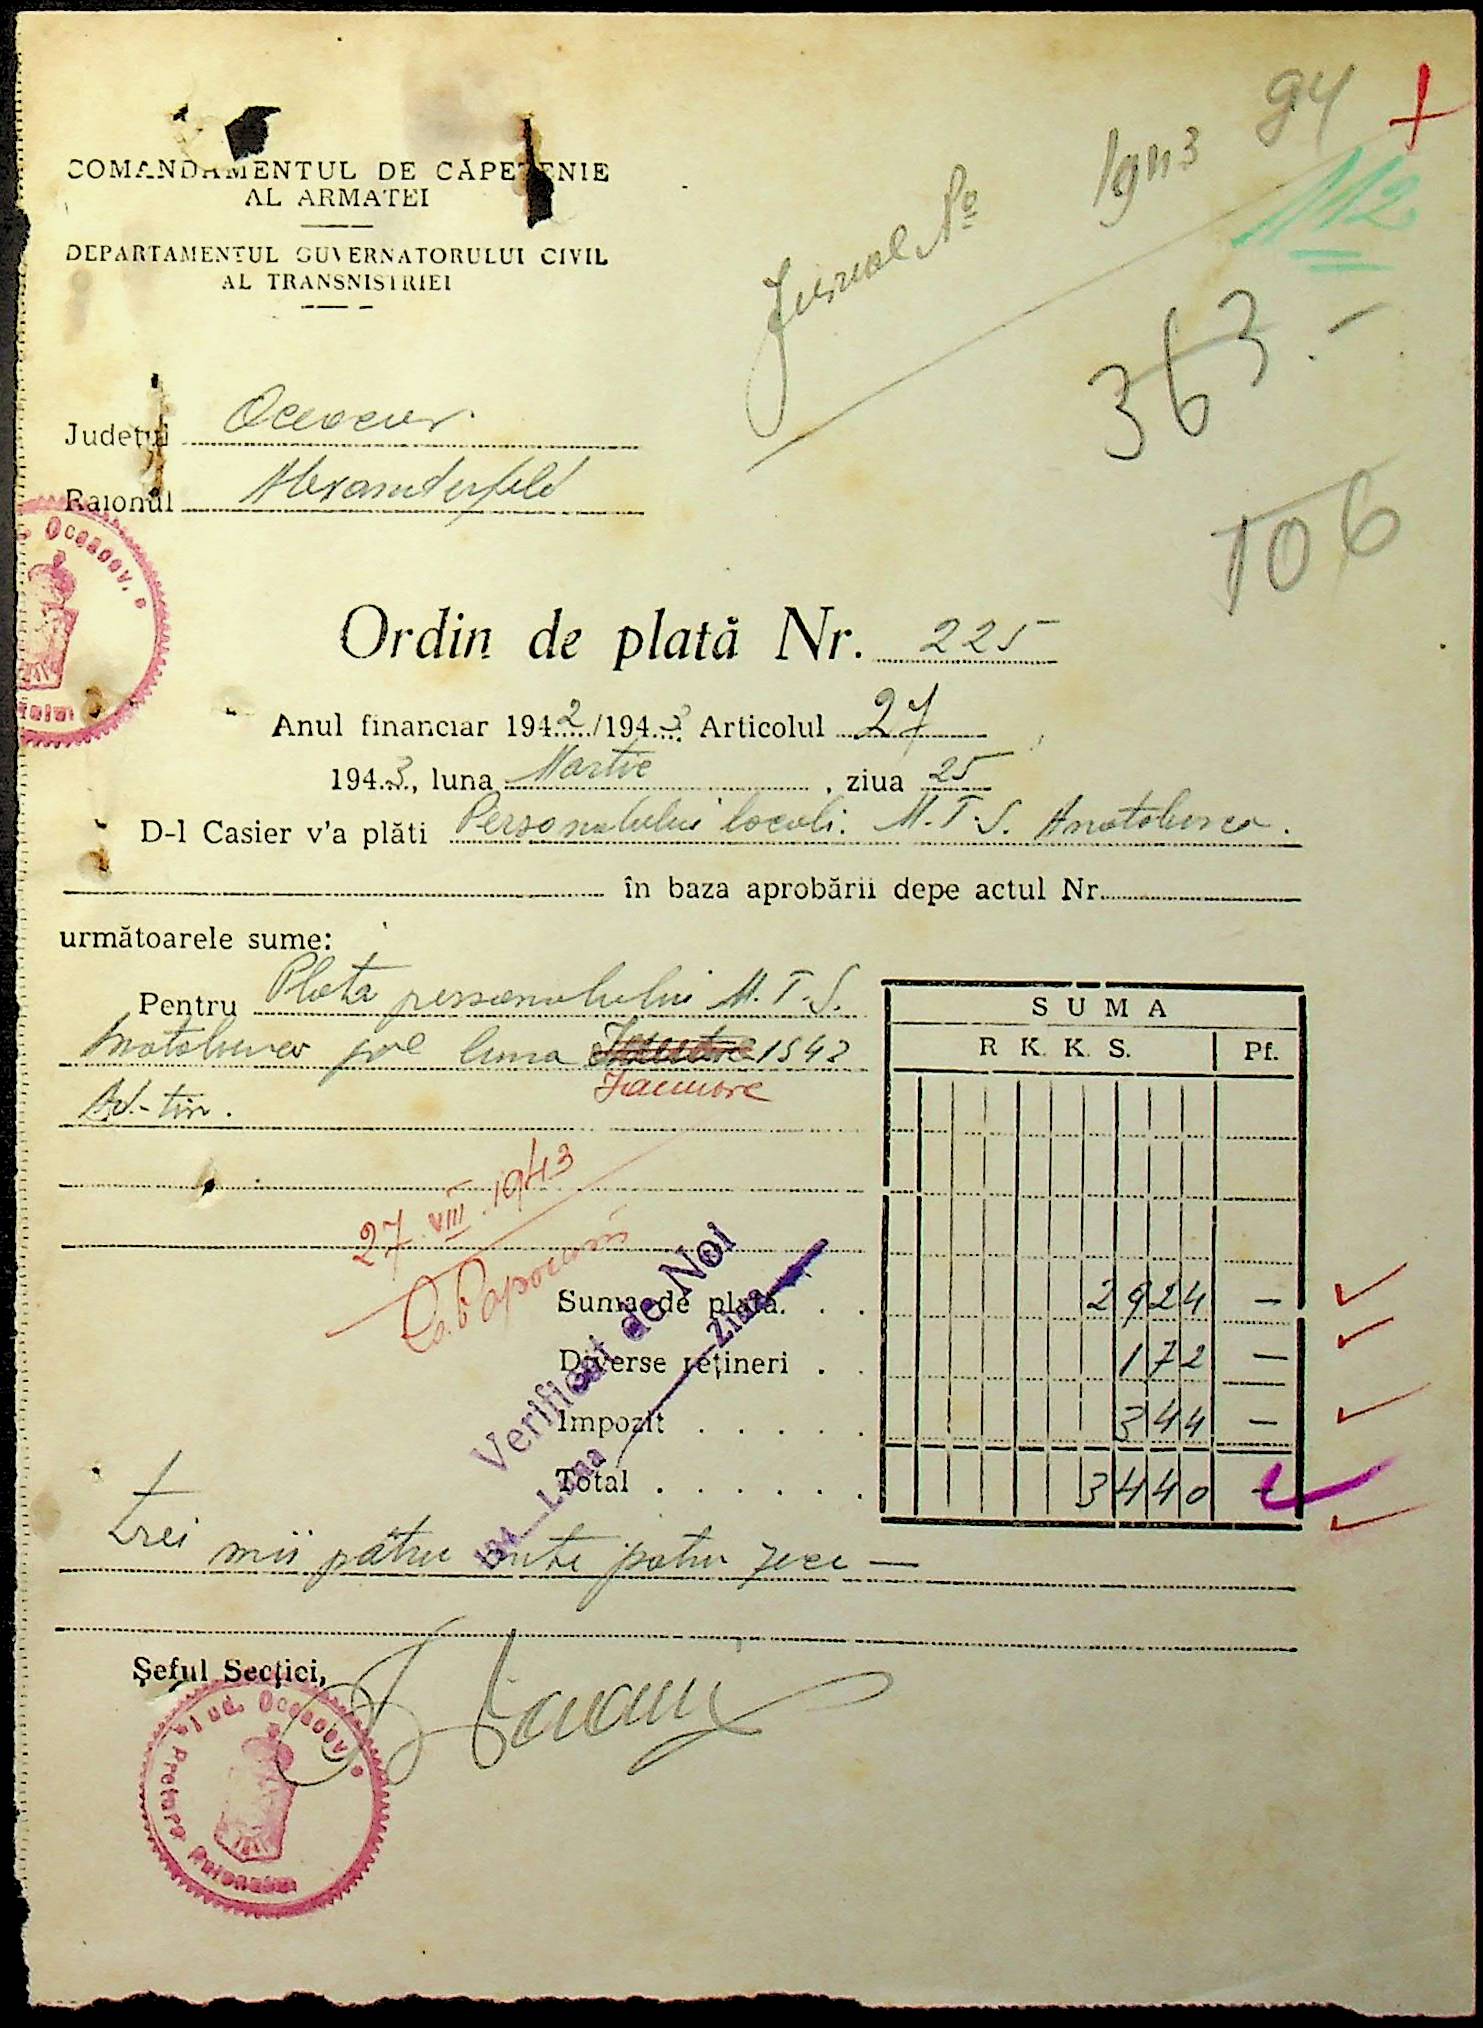 94 +
Jurnal No 1943
112
COMANDAMENTUL DE CĂPETENIE
AL ARMATEI
DEPARTAMENTUL GUVERNATORULUI CIVIL
AL TRANSNISTRIEI
363.-
106
Județul
Raionul Alexanderfeld
Oceacov.
Ordin de plată Nr. 225
Anul financiar 1942/1943 Articolul 27
1943, luna Martie, ziua 25
D-l Casier v'a plăti Personalului locali. M.T.S.
în baza aprobării depe actul Nr.
următoarele sume:
Pentru Plata personalului M.T.S.
pe luna 1943
Ianuare
SUMA
R K. K. S. Pf.
27.VIII.1943
Verificat de Noi
194 Luna Ziua
Suma de plată. . . 2924 —
Diverse rețineri . . 172 —
Impozit . . . . . . 344 —
Total . . . . . . . 3440 -
trei mii patru sute patru zeci —
Șeful Secției,
Jud. Oceacov
Pretura Raionului